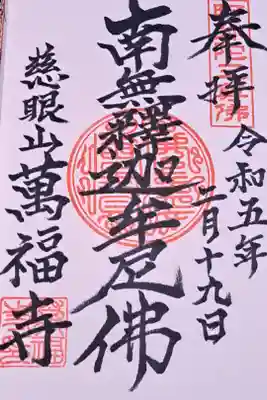 奉拝
令和五年
二月十九日
南無釋迦牟尼佛
慈眼山萬福寺